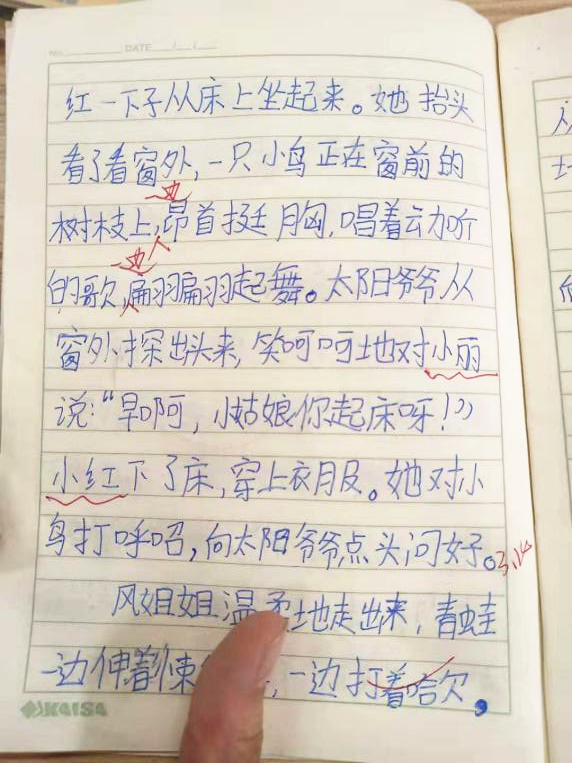 NO. DATE / /
红一下子从床上坐起来。她抬头
看了看窗外,一只小鸟正在窗前的
一边
树枝上,昂首挺胸,唱着动听
一边
的歌,翩翩起舞。太阳爷爷从
窗外探出头来,笑呵呵地对小丽
说:“早啊,小姑娘你起床呀!”
小红下了床,穿上衣服。她对小
鸟打呼召,向太阳爷爷点头问好。
风姐姐温柔地走出来,青蛙
一边伸着懒,一边打着哈欠。
KAISA